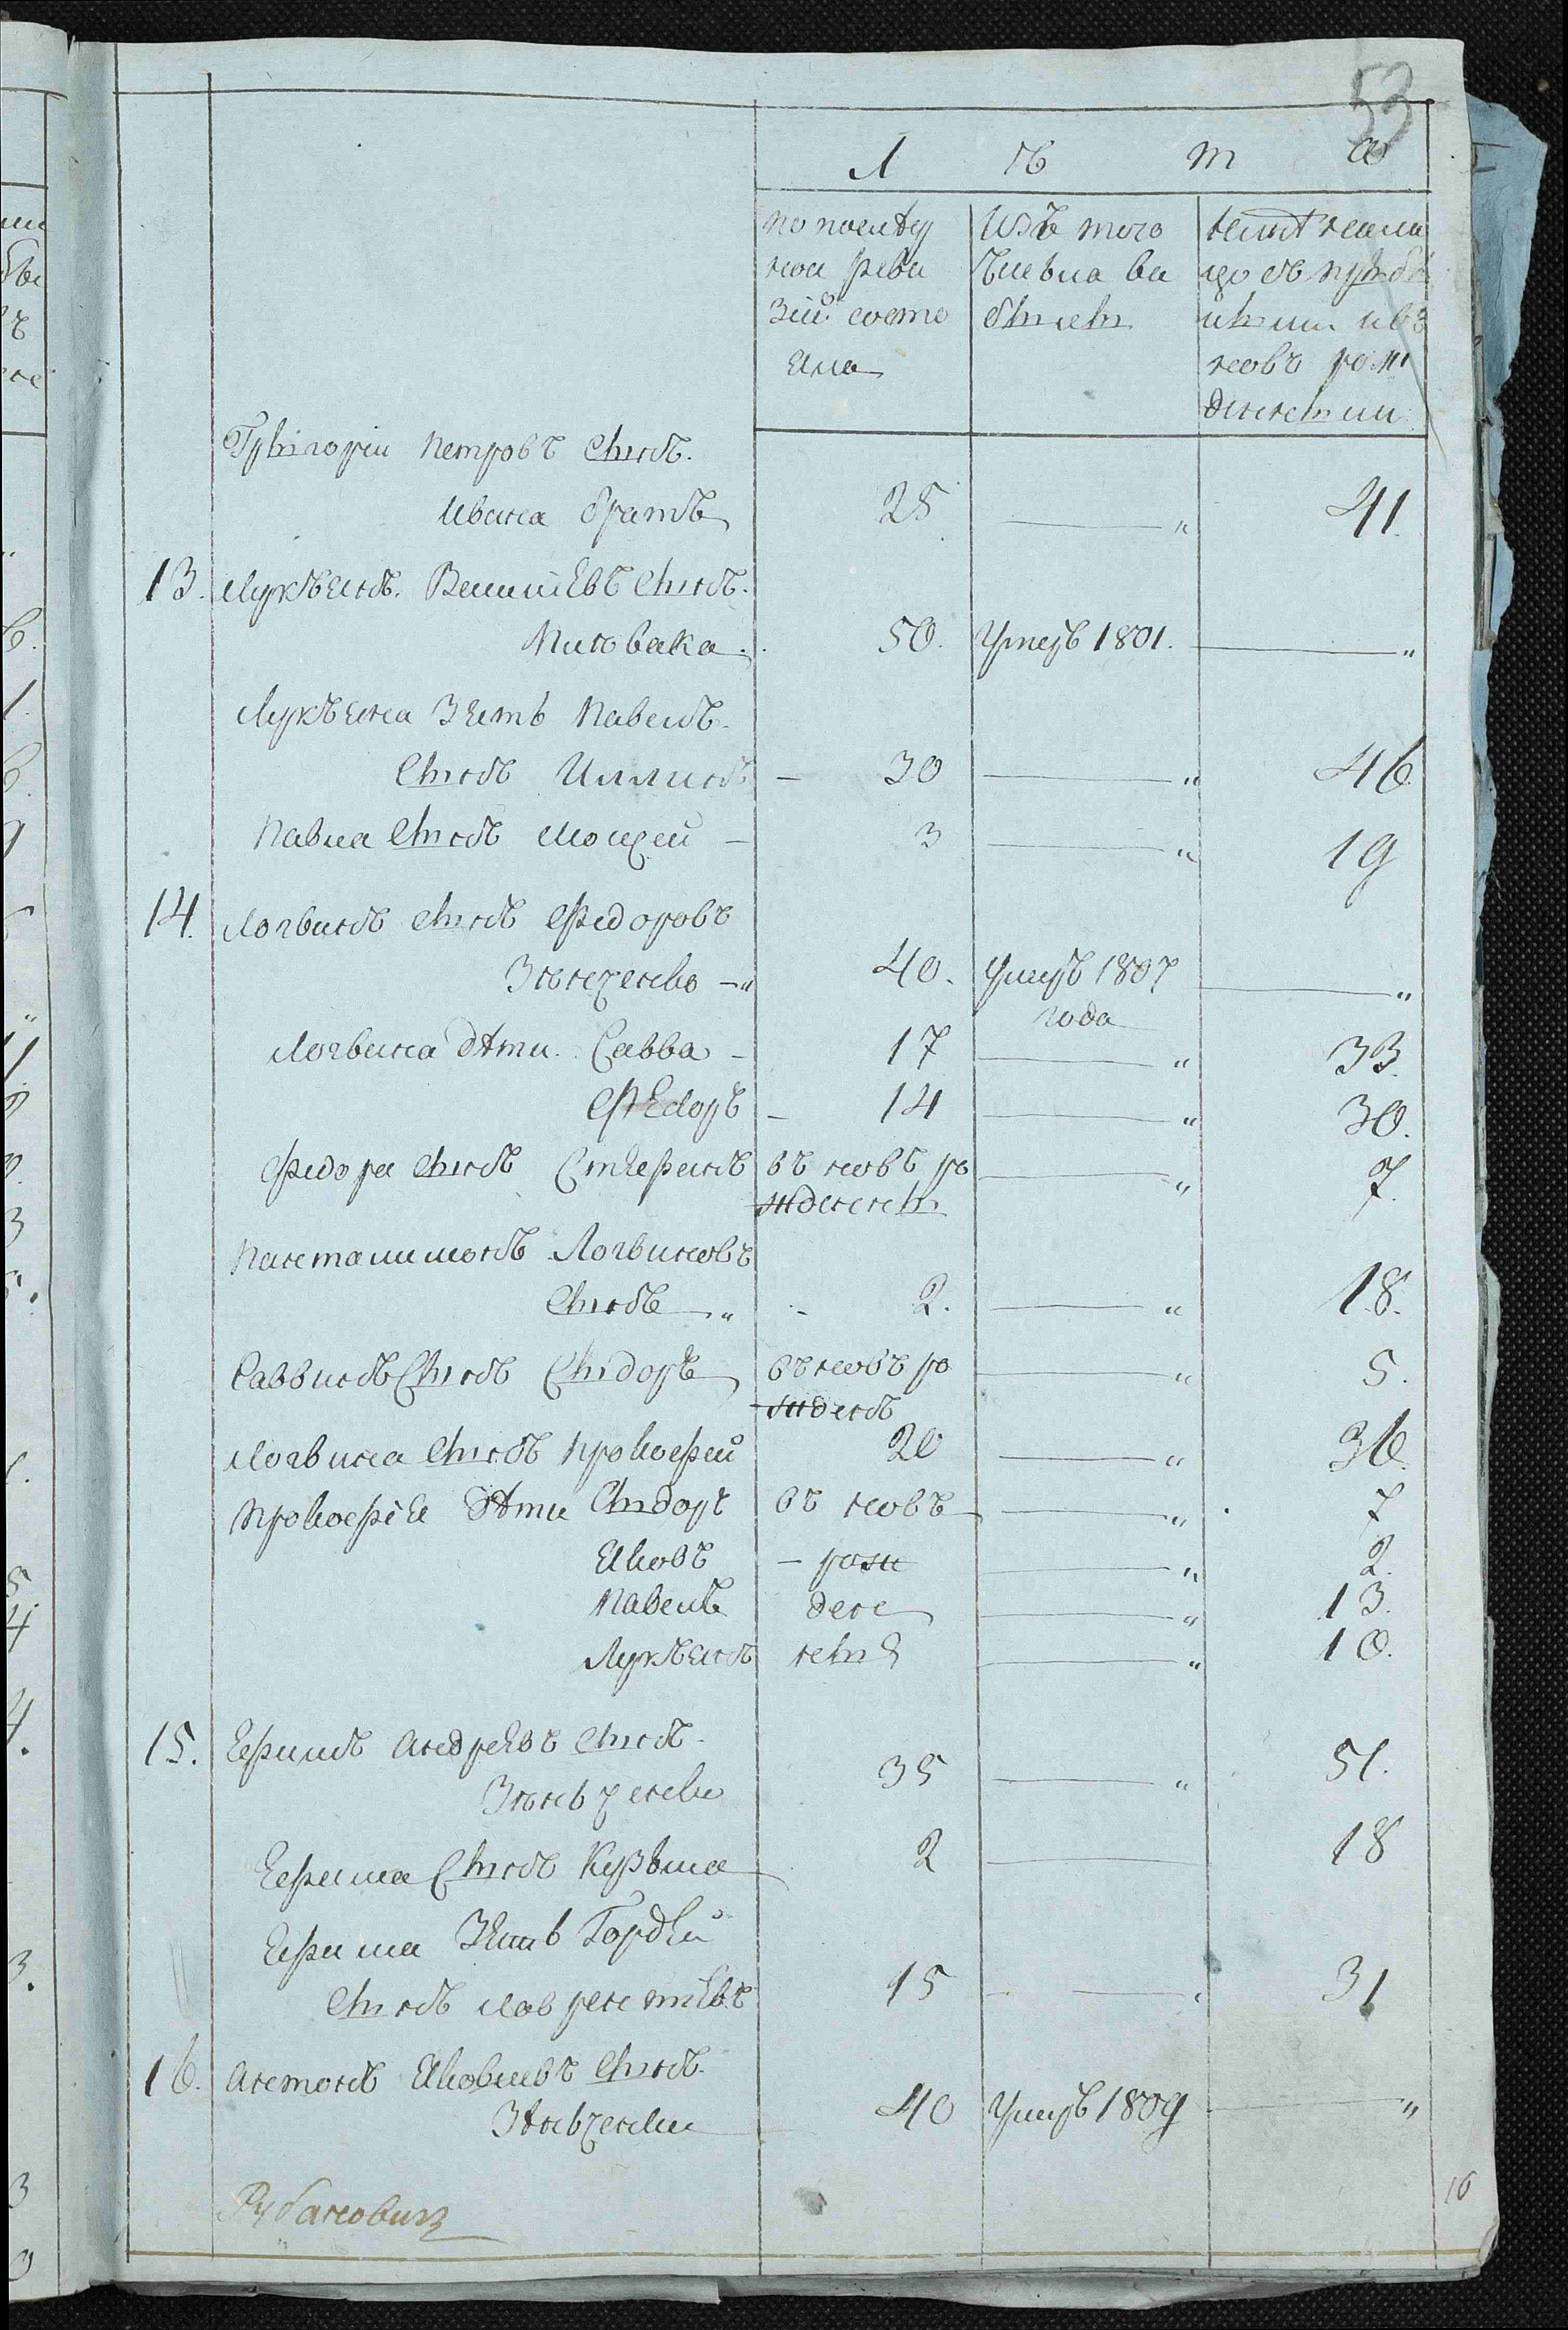 53
Л ѣ т а
по послѣд
ней реви
зіи состо
яла
Изъ того
числа вы
было
нынѣ на ли
цо съ прибы
лыми и въ
новъ рож
денными
Григорій Петровъ сынъ.
Ивана братъ 25 — „ 41.
13. Лукьянъ. сынъ.
Пиловака. 50. Умеръ 1801. — „
Лукьяна зять Павелъ
сынъ — 30 — „ 46.
Павла сынъ Мойсей — 3 — „ 19
14. Логвинъ сынъ Федоровъ
Зѣнченко — „ 40. Умеръ 1807 года — „
Логвина дѣти. Савва — 17 — „ 33.
Федоръ — 14 — „ 30.
Федора сынъ Стефанъ въ новъ ро — „ 7.
жденны
Пантелимонъ Логвиновъ
сынъ — „ - 2. — „ 18.
Саввинъ сынъ Сидоръ въ новъ ро — „ 5.
жденъ
Логвина сынъ Прокофей 20 — „ 36.
Прокофія дѣти Сидоръ въ новъ — „ 7
Яковъ — рож — „ 2.
Павелъ ден — „ 13.
Лукьянъ ныя — „ 10.
15. Ефимъ Андреевъ сынъ
Зѣнченко 35 — „ 51.
Ефима сынъ Кузьма 2 — 18
Ефима зять Гордѣй
сынъ Лаврентіевъ 15 — 31
16. Антонъ Яковлевъ сынъ
Зѣнченко 40 Умеръ 1809 — „
Рубановичъ
16